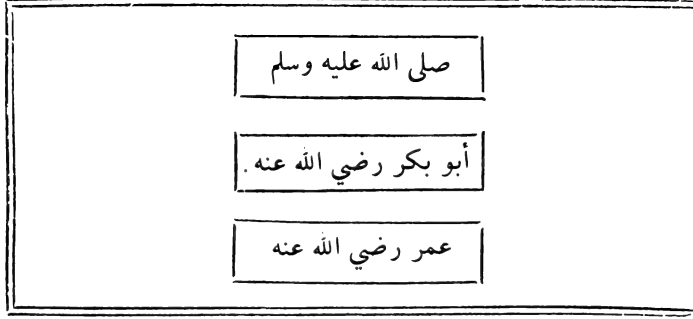 صلى الله عليه وسلم
أبو بكر رضي الله عنه .
عمر رضي الله عنه